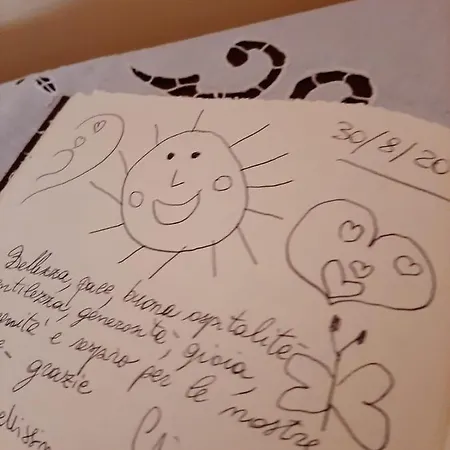 30/8/20
Bellezza, pace, buona ospitalità
gentilezza, generosità, gioia,
serenità e respiro per le nostre
grazie